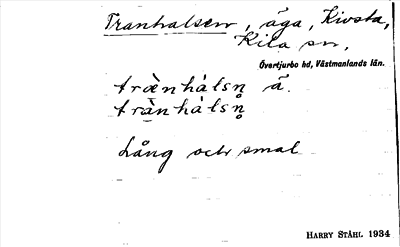 Tranhalsen, äga, Kivsta,
Kila sn,
Övertjurbo hd, Västmanlands län.
træ̀nhàlsn̥ ä.
trä̀nhàlsn̥
Lång och smal
HARRY STÅHL 1934